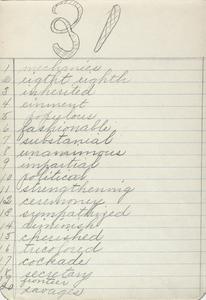 31
1 mechanics
2 eight eighth
3 inherited
4 eminent
5 populous
6 fashionable
7 substanial
8 unanimous
9 impartial
10 political
11 strengthening
12 ceremoney
13 sympathized
14 diminish
15 cherished
16 tricolored
17 cockade
18 secretary
19 frontier
20 savages